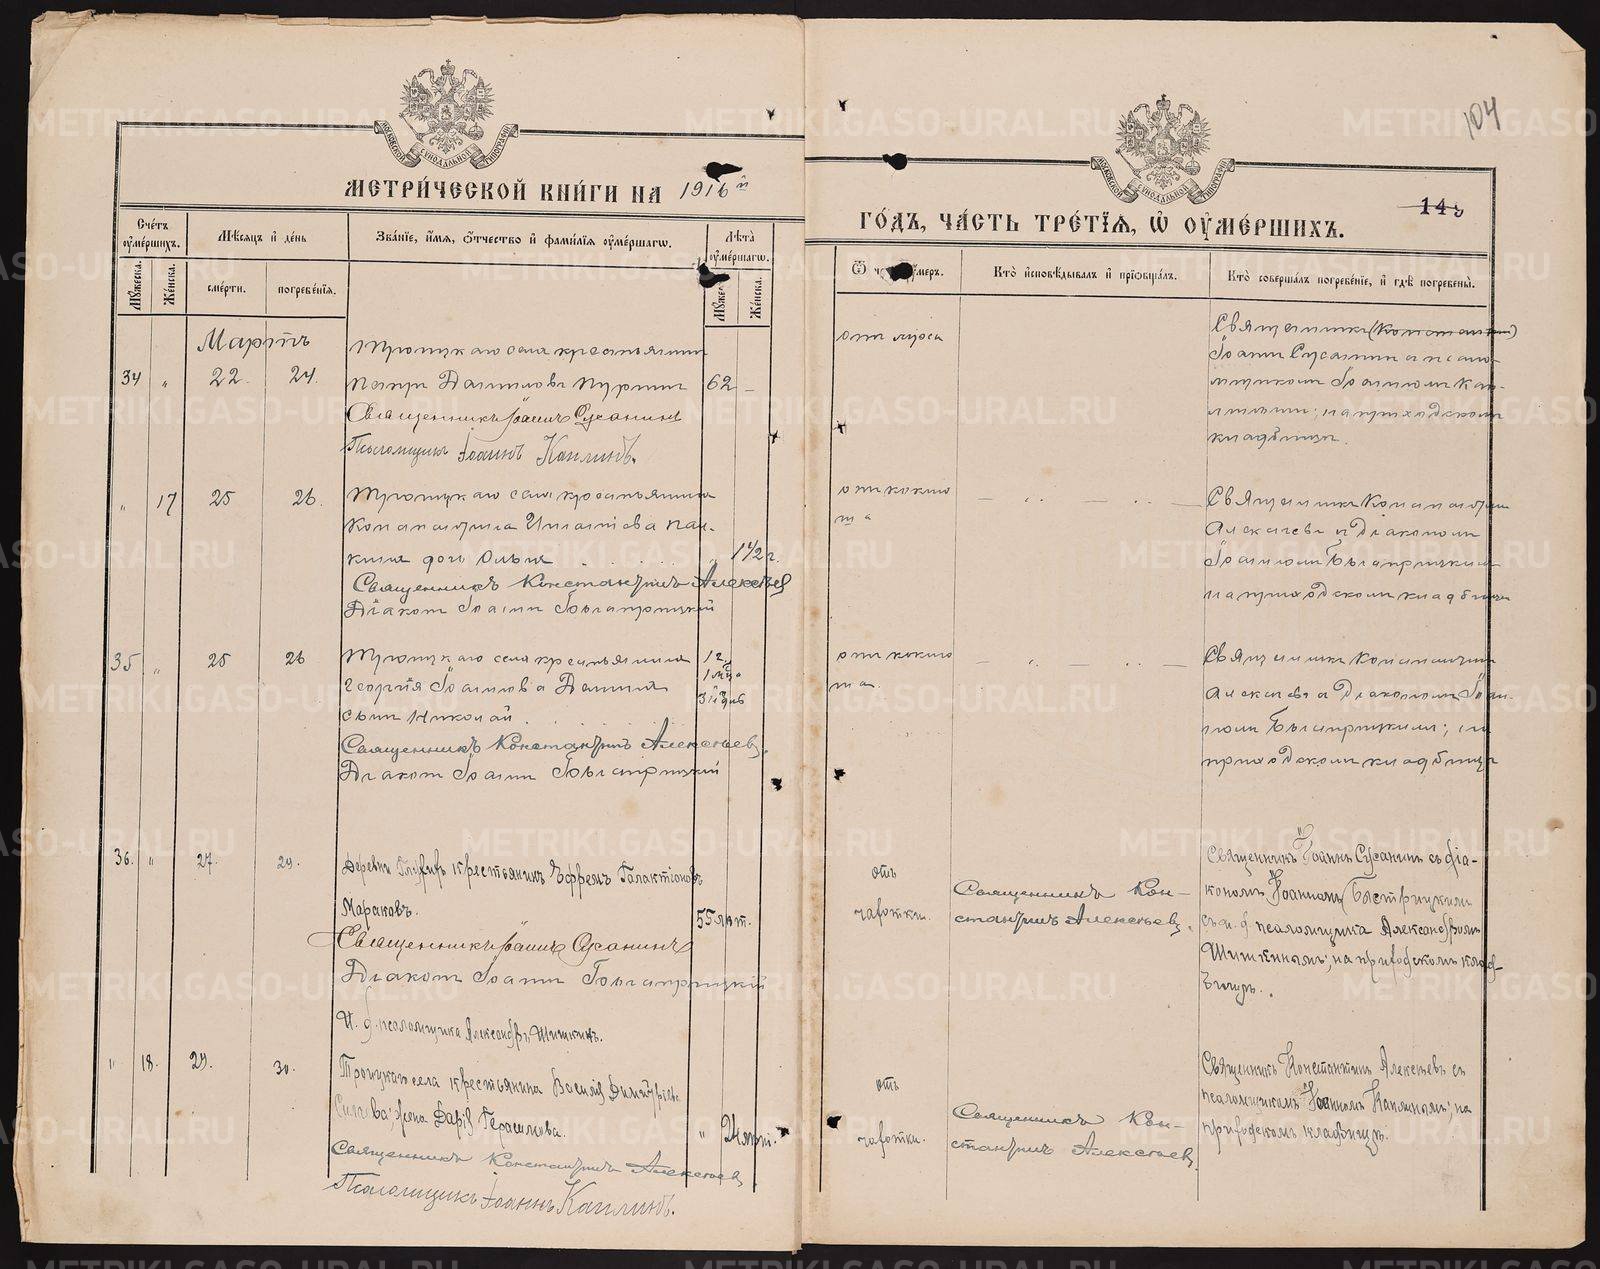 104
МЕТРИ́ЧЕСКОЙ КНИ́ГИ НА 1916 й
ГО́ДЪ, ЧА́СТЬ ТРЕ́ТЇѦ, Ѡ҆ ОУ҆МЕ́РШИХЪ.
Сче́тъ оу҆ме́ршихъ.
Мѣ́сѧцъ и҆ де́нь
Зва́нїе, и҆́мѧ, ѻ҆́тчество и҆ фами́лїѧ оу҆ме́ршагѡ.
Лѣ́та оу҆ме́ршагѡ.
Му́жеска.
Же́нска.
сме́рти.
погребе́нїѧ.
Му́жеск
Же́нска.
Кто̀ и҆сповѣ́дывалъ и҆ прїѡбща́лъ.
Кто̀ соверша́лъ погребе́нїе, и҆ гдѣ̀ погребены̀.
Мартъ
Троицкаго села крестьянин
34 " 22. 24. Петръ Даниловъ 62 –
Священникъ Іоаннъ Сусанинъ
Псаломщикъ Іоаннъ Каплинъ.
Священникъ
Іоаннъ Сусанин с псало-
мщиком Іоанном Кап-
линым; на приходском
кладбищѣ.
" 17 25 26. Троицкаго села крестьянина
Константина Игнатіева
дочь Ольга " 1 1/2 г.
Священникъ Константинъ Алексѣев
Діакон Іоанн Быстрицкій
от коклю
ша
Священник Константин
Алексѣев и діаконом
Іоанном Быстрицким
на приходском кладбищѣ
35 " 25 26 Троицкаго села крестьянина
Георгія Іоаннова
сын Николай
1 г.
1 мѣс.
3 дня
Священникъ Константинъ Алексѣев.
Діакон Іоанн Быстрицкій
от коклю
ша.
Священник Константин
Алексѣев и діаконом Іоан-
ном Быстрицким; на
приходском кладбищѣ
36. " 27. 29. Деревни крестьянинъ Ефремъ Галактіоновъ
Мараковъ. 55 лѣт.
Священникъ Іоаннъ Сусанинъ
Діакон Іоанн Быстрицкій
И. д. псаломщика Александръ Шишкинъ.
отъ
чахотки.
Священникъ Кон-
стантинъ Алексѣев.
Священникъ Іоаннъ Сусанинъ съ діа-
кономъ Іоанномъ Быстрицкимъ
съ и. д. псаломщика Александромъ
Шишкинымъ; на приходскомъ клад-
бищѣ.
" 18. 29. 30. Троицкаго села крестьянина Василія Димитріева
жена Дарія Герасимова. "
Священникъ Константинъ Алексѣев
Псаломщикъ Іоаннъ Каплинъ.
отъ
чахотки.
Священникъ Кон-
стантинъ Алексѣев.
Священникъ Константинъ Алексѣевъ съ
псаломщикомъ Іоанномъ Каплинымъ; на
приходскомъ кладбищѣ.
METRIKI.GASO-URAL.RU